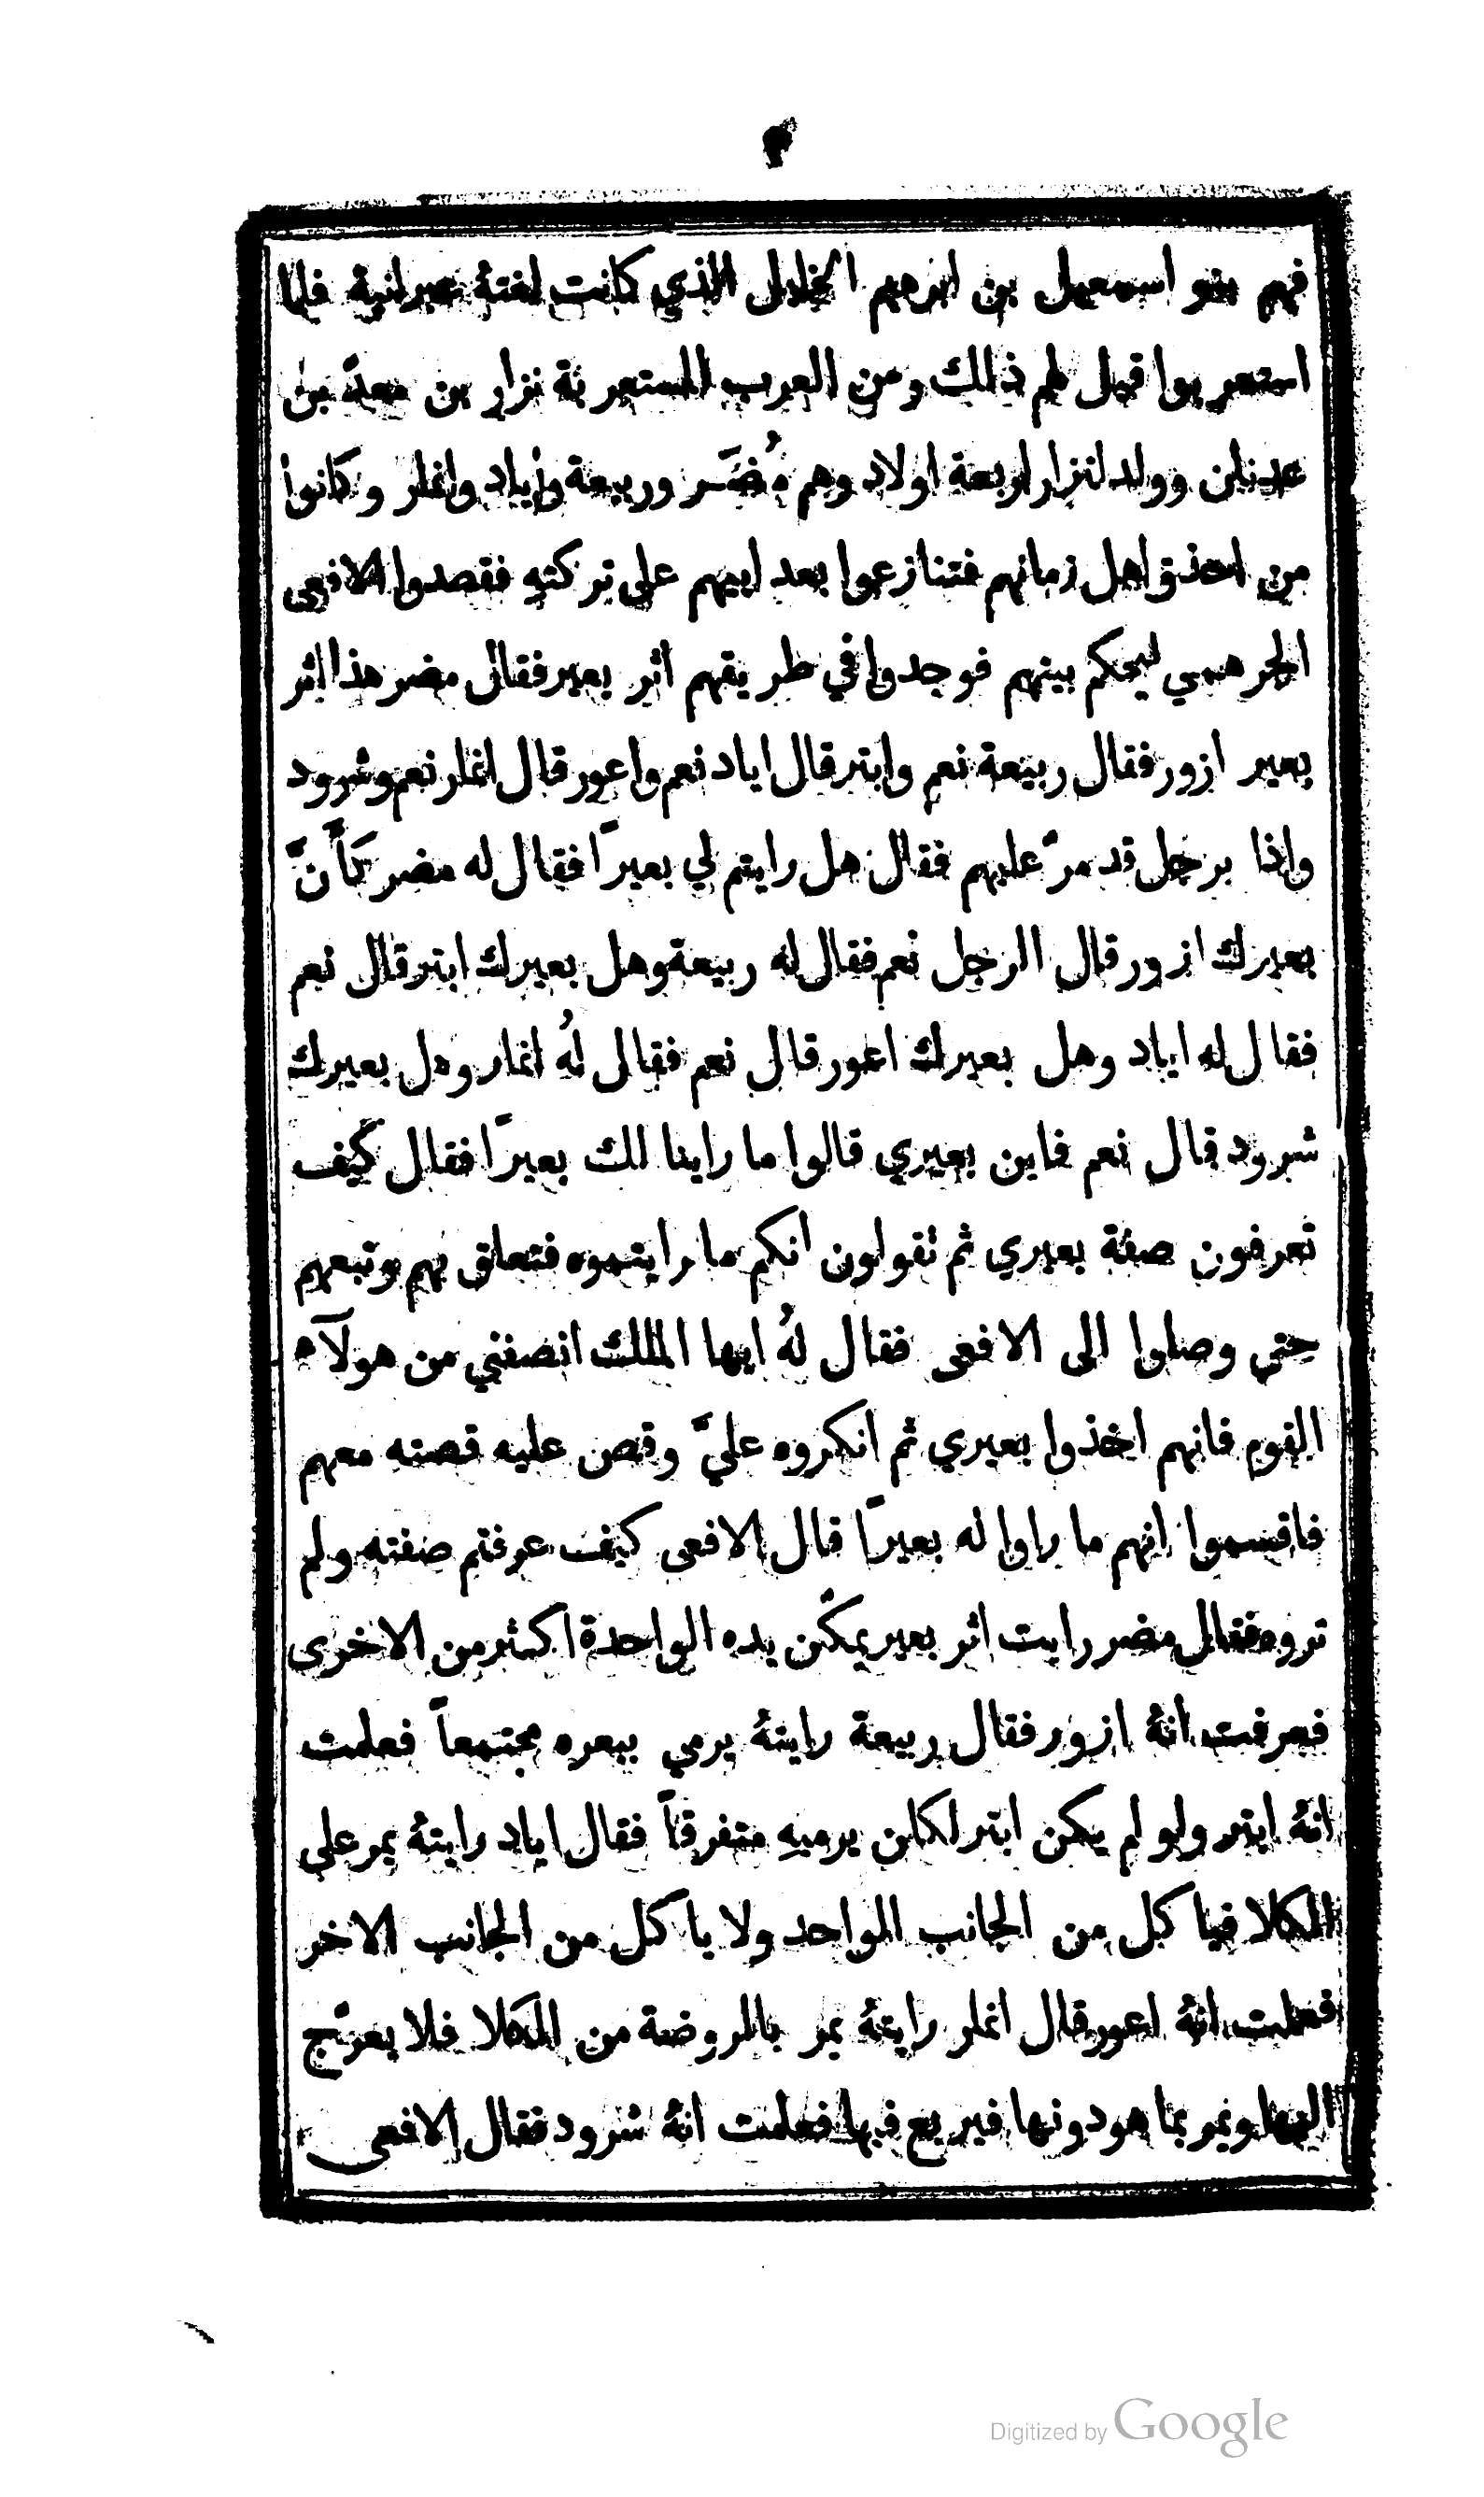 فهم بنو اسمعيل بن ابرهم الخليل الذي كانت لغتهُ عبرانية فلما
استعربوا قيل لهم ذلك ومن العرب المستعربة نزار بن معدّ بن
عدنان وولد لنزار اربعة اولاد وهم مُضَر وربيعة واياد وانمار وكانوا
من احذق اهل زمانهم فتنازعوا بعد ابيهم على تركتهِ فقصدوا الافعى
الجرهمي ليحكم بينهم فوجدوا في طريقهم اثر بعير فقال مضر هذا اثر
بعير ازور فقال ربيعة نعم وابتر قال اياد نعم واعور قال انمار نعم وشرود
واذا برجل قد مرّ عليهم فقال هل رايتم لي بعيرًا فقال له مضر كأَنَّ
بعيرك ازور قال الرجل نعم فقال له ربيعة وهل بعيرك ابتر قال نعم
فقال له اياد وهل بعيرك اعور قال نعم فقال لهُ انمار وهل بعيرك
شرود قال نعم فاين بعيري قالوا ما راينا لك بعيرًا فقال كيف
تعرفون صفة بعيري ثم تقولون انكم ما رايتموه فتعلق بهم وتبعهم
حتى وصلوا الى الافعى فقال لهُ ايها الملك انصفني من هولآء
القوم فانهم اخذوا بعيري ثم انكروه عليَّ وقص عليه قصته معهم
فاقسموا انهم ما راوا له بعيرًا قال الافعى كيف عرفتم صفته ولم
تروه فقال مضر رايت اثر بعير يمكّن يده الواحدة اكثر من الاخرى
فعرفت انهُ ازور فقال ربيعة رايتهُ يرمي ببعره مجتمعاً فعلمت
انهُ ابتر ولو لم يكن ابتر لكان يرميهِ متفرقاً فقال اياد رايتهُ يمر على
الكلا فياكل من الجانب الواحد ولا ياكل من الجانب الاخر
فعلمت انهُ اعور قال انمار رايتهُ يمر بالروضة من الكلا فلا يعرّج
اليها ويمر بما هو دونها فيربع فيها فعلمت انهُ شرود فقال الافعى
Digitized by Google